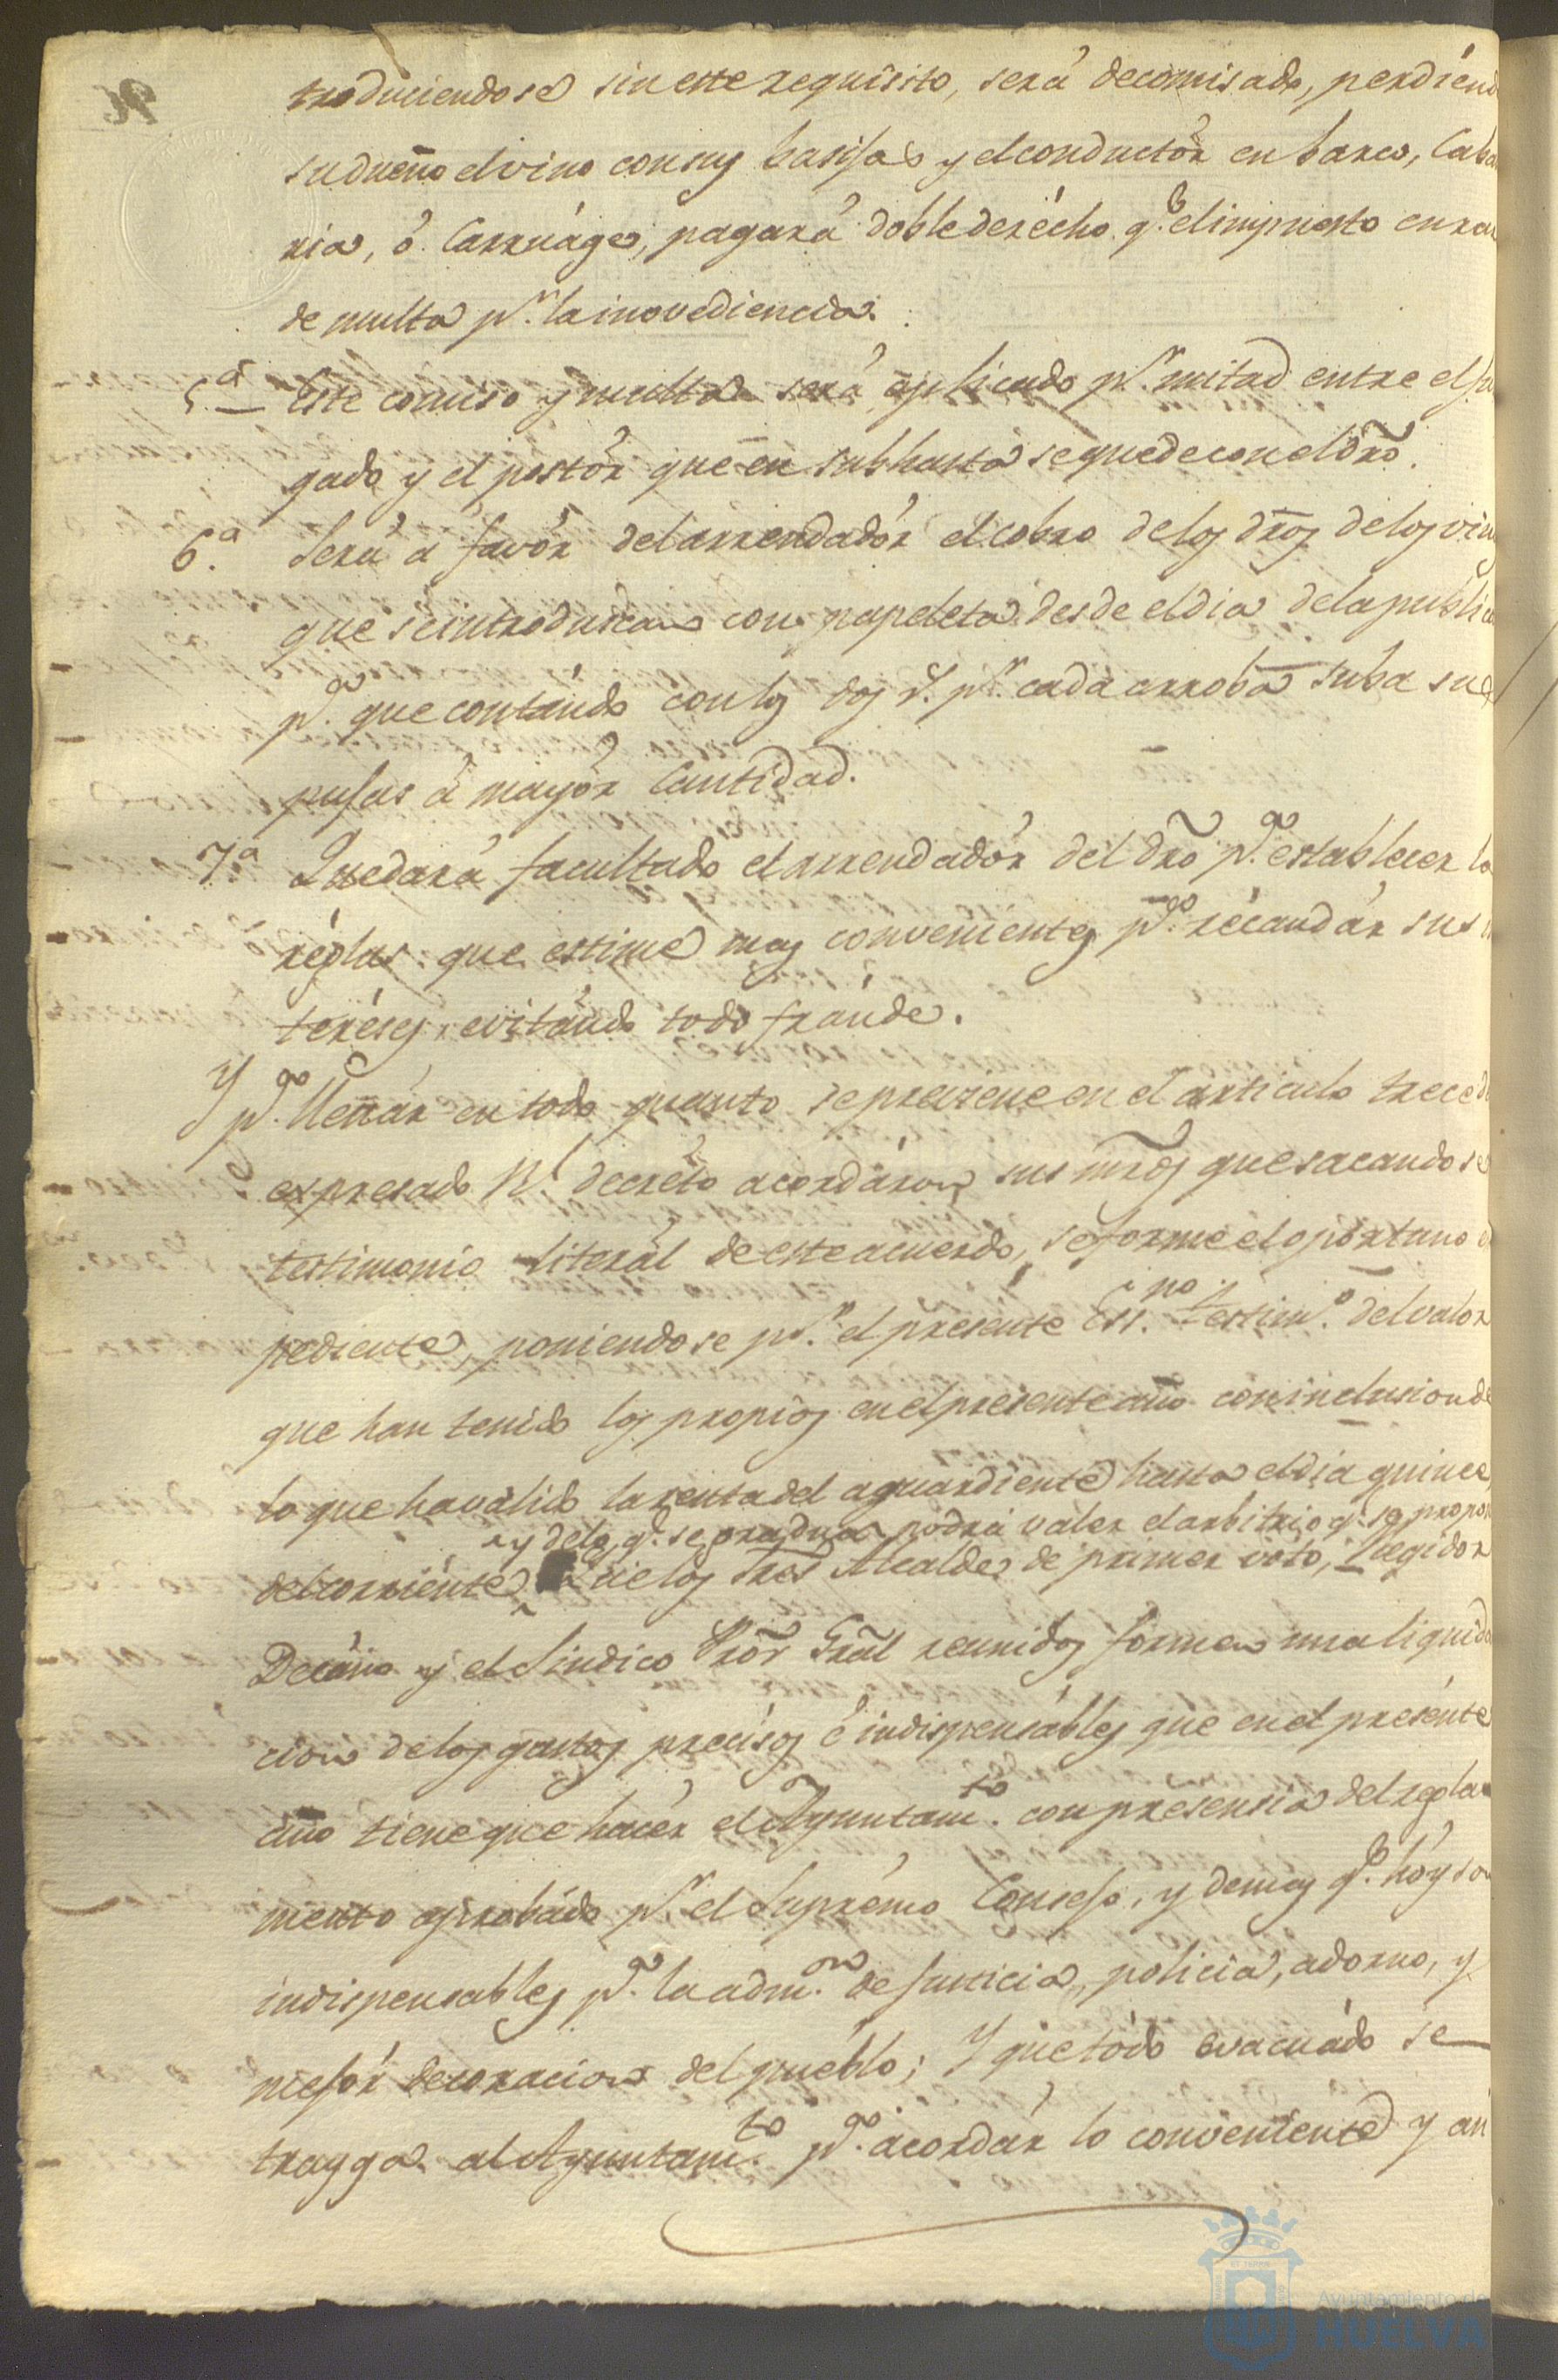 troduciendose sin este requisito, será decomisado, perdiend
su dueño el vino con sus basijas y el conductór en barco, Caba
ria, ó Carruáge, pagará doble derécho q.e el impuesto en ra
de multa p.r la inovediencia.
5.a Este comiso y multa será aplicado p.r mitad entre el Ju
gado y el postór que en subhasta se quede con el dr̃o.
6.a Será á favór del arrendadór el cobro de los dr̃os de los vin
que se introduscan con papeleta desde el dia de la public
p.a que contándo con los dos r.s p.r cada arroba suba su
pujas á mayór Cantidad.
7.a Quedará facultado el arrendadór del dr̃o p.a establecer la
réglas que estime mas convenientes p.a recaudár sus in
teréses, evitándo todo fráude.
Y p.a llenár en todo quanto se previene en el articulo trece d
expresado R.l decréto acordáron sus mr̃ds que sacandose
testimonio literál de este acuerdo, se forme el oportuno e
pediente, poniendose p.r el presente Ess.no testim.o del valor
que han tenido los propios en el presente año con inclusion de
lo que ha válido la renta del aguardiente hasta el dia quince
y de lo q.e se gradua podrá valer el arbitrio q.e se propon
del corriénte que los Sres Alcalde de primer voto, Regidor
Decáno y el Sindico Pr̃or Gr̃al reunidos formen una liquida
cion de los gastos precisos é indispensábles que en el presénte
año tiene que hacér el Ayuntam.to con presensia del regla
mento aprobádo p.r el Suprémo Consejo, y demas q.e hóy son
indispensables p.a la adm.on de Justicia, policia, adorno, y
mejór decoracion del pueblo; Y que tódo evacuádo se
trayga al Ayuntam.to p.a acordár lo conveniente y an
Ayuntamiento de
HUELVA